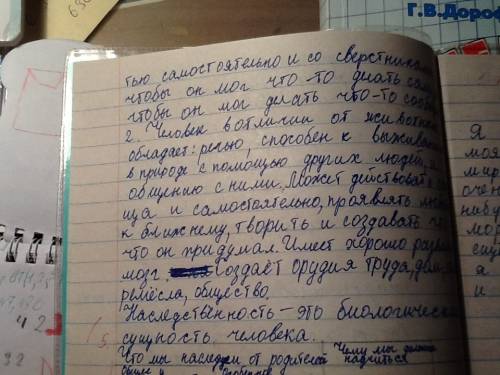 Г.В.Дороф
тью самостоятельно и со сверстника
чтобы он мог что-то делать сам
чтобы он мог делать что-то сообщ
2. Человек в отличии от животных
обладает: речью, способен к выжива
в природе с помощью других людей,
общению с ними. Может действовать
ща и самостоятельно, проявлять
к ближнему, творить и создавать
что он придумал. Имеет хорошо разви
мозг. Создаёт орудия труда,
ремёсла, общество.
Наследственность - это биологическа
сущность человека.
Что мы наследуем от родителей
Чему мы должны научиться
Я
моя
мир
очен
нибу
мор
сущ
а
и